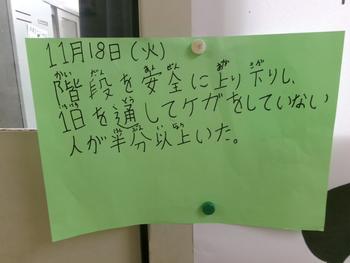 11月18日(火)
階段を安全に上り下りし、
1日を通してケガをしていない
人が半分以上いた。